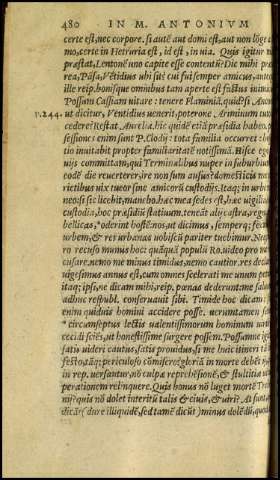 480 IN M. ANTONIVM
certe est, nec corpore. si autē aut domi est, aut non lōge a
mo, certe in Hetruria est, id est, in uia. Quis igitur
præstat, Lentonē uno capite esse contentū? Dic mihi
rea, Pāsa, Vētidius ubi sit? cui fui semper amicus, ante
ille reip. bonisque omnibus tam aperte est factus inimic
Possum Cassiam uitare: tenere Flaminiā. quid? si Ancō
P.244. ut dicitur, Ventidius uenerit, poterone Ariminum tut
cedere? Restat Aurelia. hic quidē etiā præsidia habeo
sessiones enim sunt P. Clodij: tota familia occurret: ho
tio inuitabit propter familiaritatē notissimā. Hisce ego
uijs committam, qui Terminalibus nuper in suburbium
codē die reuerterer, ire non sum ausus? domesticis me
rietibus uix tueor sine amicorū custodijs. Itaq; in urbe
neo. si licebit, manebo. hæc mea sedes est, hæc uigilia
custodia, hoc præsidiū statiuum. teneāt alij castra, reg
bellicas, *oderint hostē: nos, ut dicimus, semperq; feci
urbem, & res urbanas uobiscū pariter tuebimur. Neq
ro recuso munus hoc: quāquā populū Ro. uideo pro me
cusare. nemo me minus timidus, nemo cautior. res decla
uigesimus annus est, cum omnes scelerati me unum pet
itaq; ipsi, ne dicam mihi, reip. pœnas dederunt: me saluū
adhuc respubl. conseruauit sibi. Timide hoc dicam:
enim quiduis homini accidere posse. uerumtamen
*circumseptus lectis ualentissimorum hominum uir
cecidi sciēs, ut honestissime surgere possem. Possumne ig
satis uideri cautus, satis prouidus, si me huic itineri
festo, tāq; periculoso cōmisero? gloriā in morte debēt
in rep. uersantur, nō culpæ reprehēsionē, & stultitiæ
perationem relinquere. Quis bonus nō luget mortē Tre
nij? quis nō dolet interitū talis & ciuis, & uiri? At sunt
dicāt, (dure illi quidē, sed tamē dicūt) minus dolēdū, quod